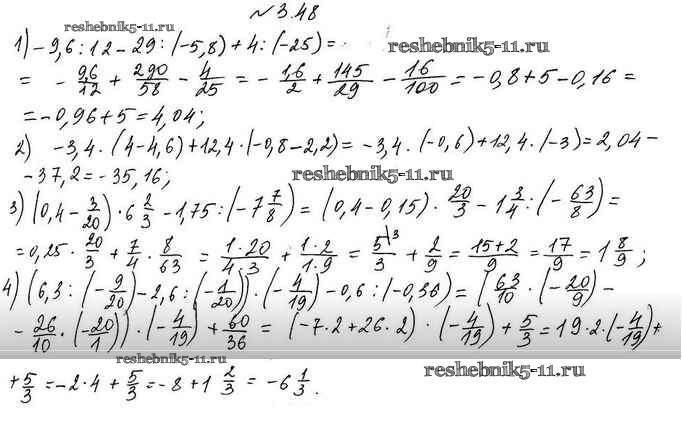 №3.48
reshebnik5-11.ru
1) -9,6:12-29:(-5,8)+4:(-25)= reshebnik5-11.ru
= - 9,6/12 + 290/58 - 4/25 = - 1,6/2 + 145/29 - 16/100 = -0,8+5-0,16=
=-0,96+5=4,04;
2) -3,4·(4-4,6)+12,4·(-0,8-2,2)=-3,4·(-0,6)+12,4·(-3)=2,04-
-37,2=-35,16; reshebnik5-11.ru
3) (0,4- 3/20)·6 2/3 -1,75:(-7 7/8)=(0,4-0,15)· 20/3 -1 3/4 :(- 63/8)=
=0,25· 20/3 + 7/4 · 8/63 = 1·20/4·3 + 1·2/1·9 = 5/3 \3 + 2/9 = 15+2/9 = 17/9 = 1 8/9;
4) (6,3:(- 9/20)-2,6:(- 1/20))·(- 4/19)-0,6:(-0,36)=(63/10 ·(- 20/9)-
- 26/10 ·(- 20/1))·(- 4/19)+ 60/36 = (-7·2+26·2)·(- 4/19)+ 5/3 =19·2·(- 4/19)+
reshebnik5-11.ru reshebnik5-11.ru
+ 5/3 =-2·4+ 5/3 =-8+1 2/3 = -6 1/3.